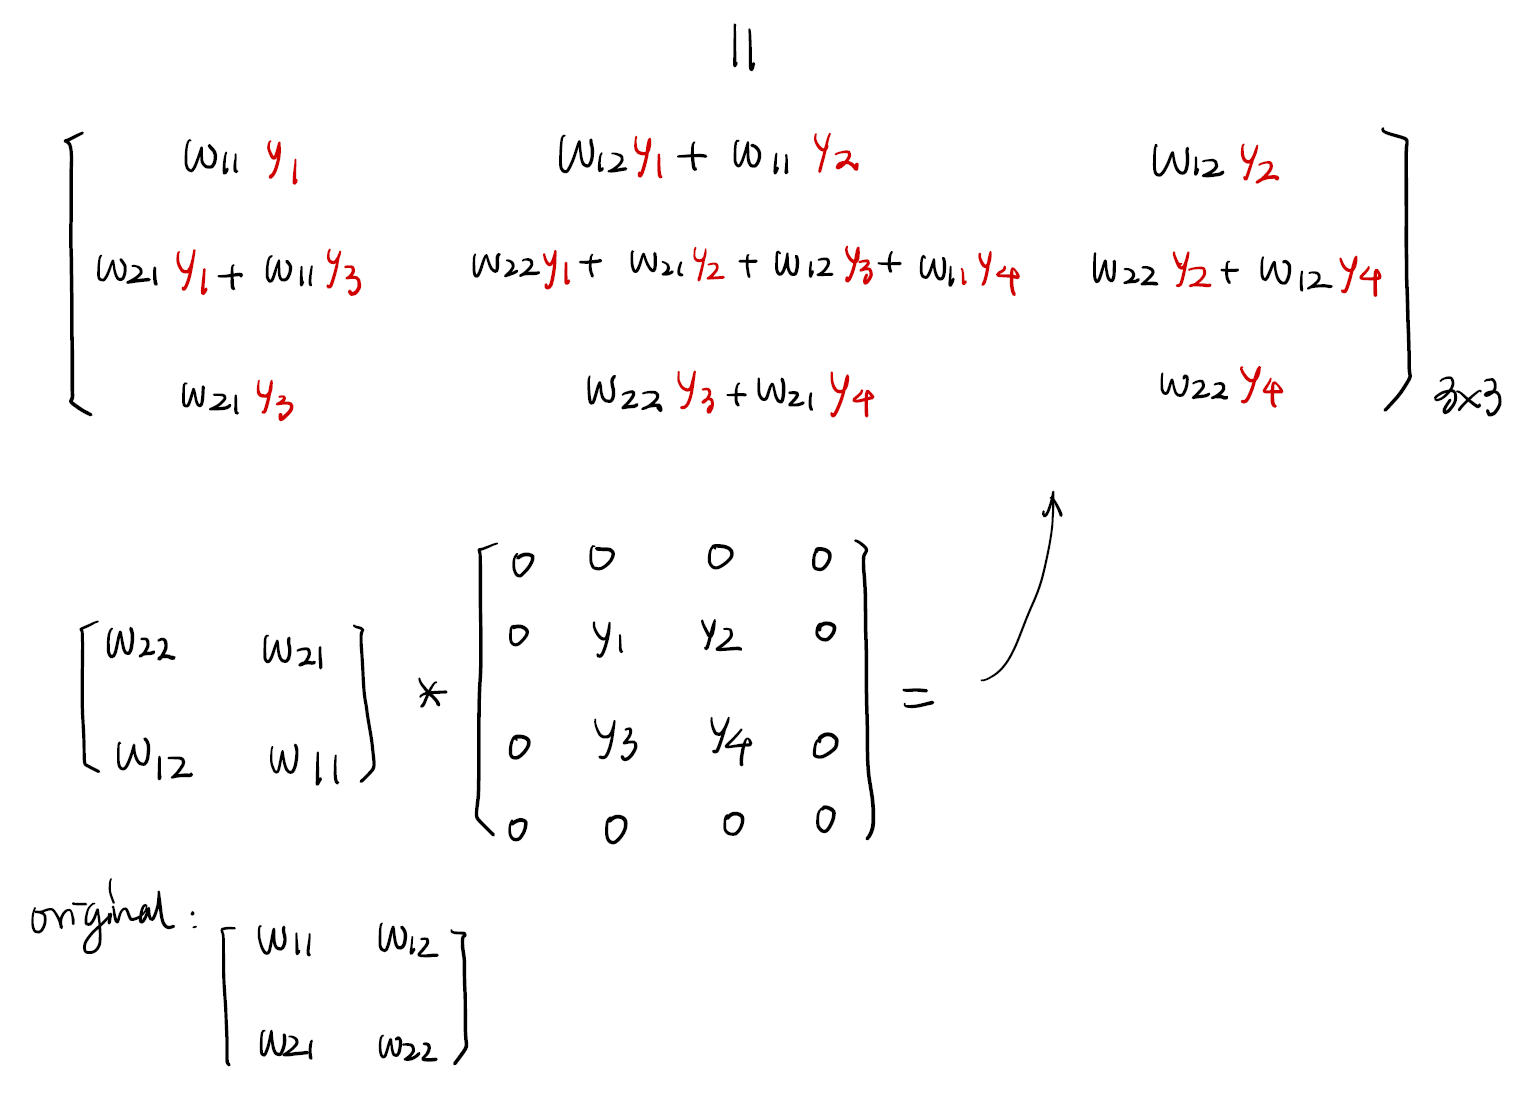 ||
w11 y1 w12y1 + w11 y2 w12 y2
w21 y1 + w11 y3 w22y1 + w21y2 + w12 y3 + w11 y4 w22 y2 + w12 y4
w21 y3 w22 y3 + w21 y4 w22 y4
3×3
0 0 0 0
w22 w21 0 y1 y2 0
* =
w12 w11 0 y3 y4 0
0 0 0 0
original:
w11 w12
w21 w22